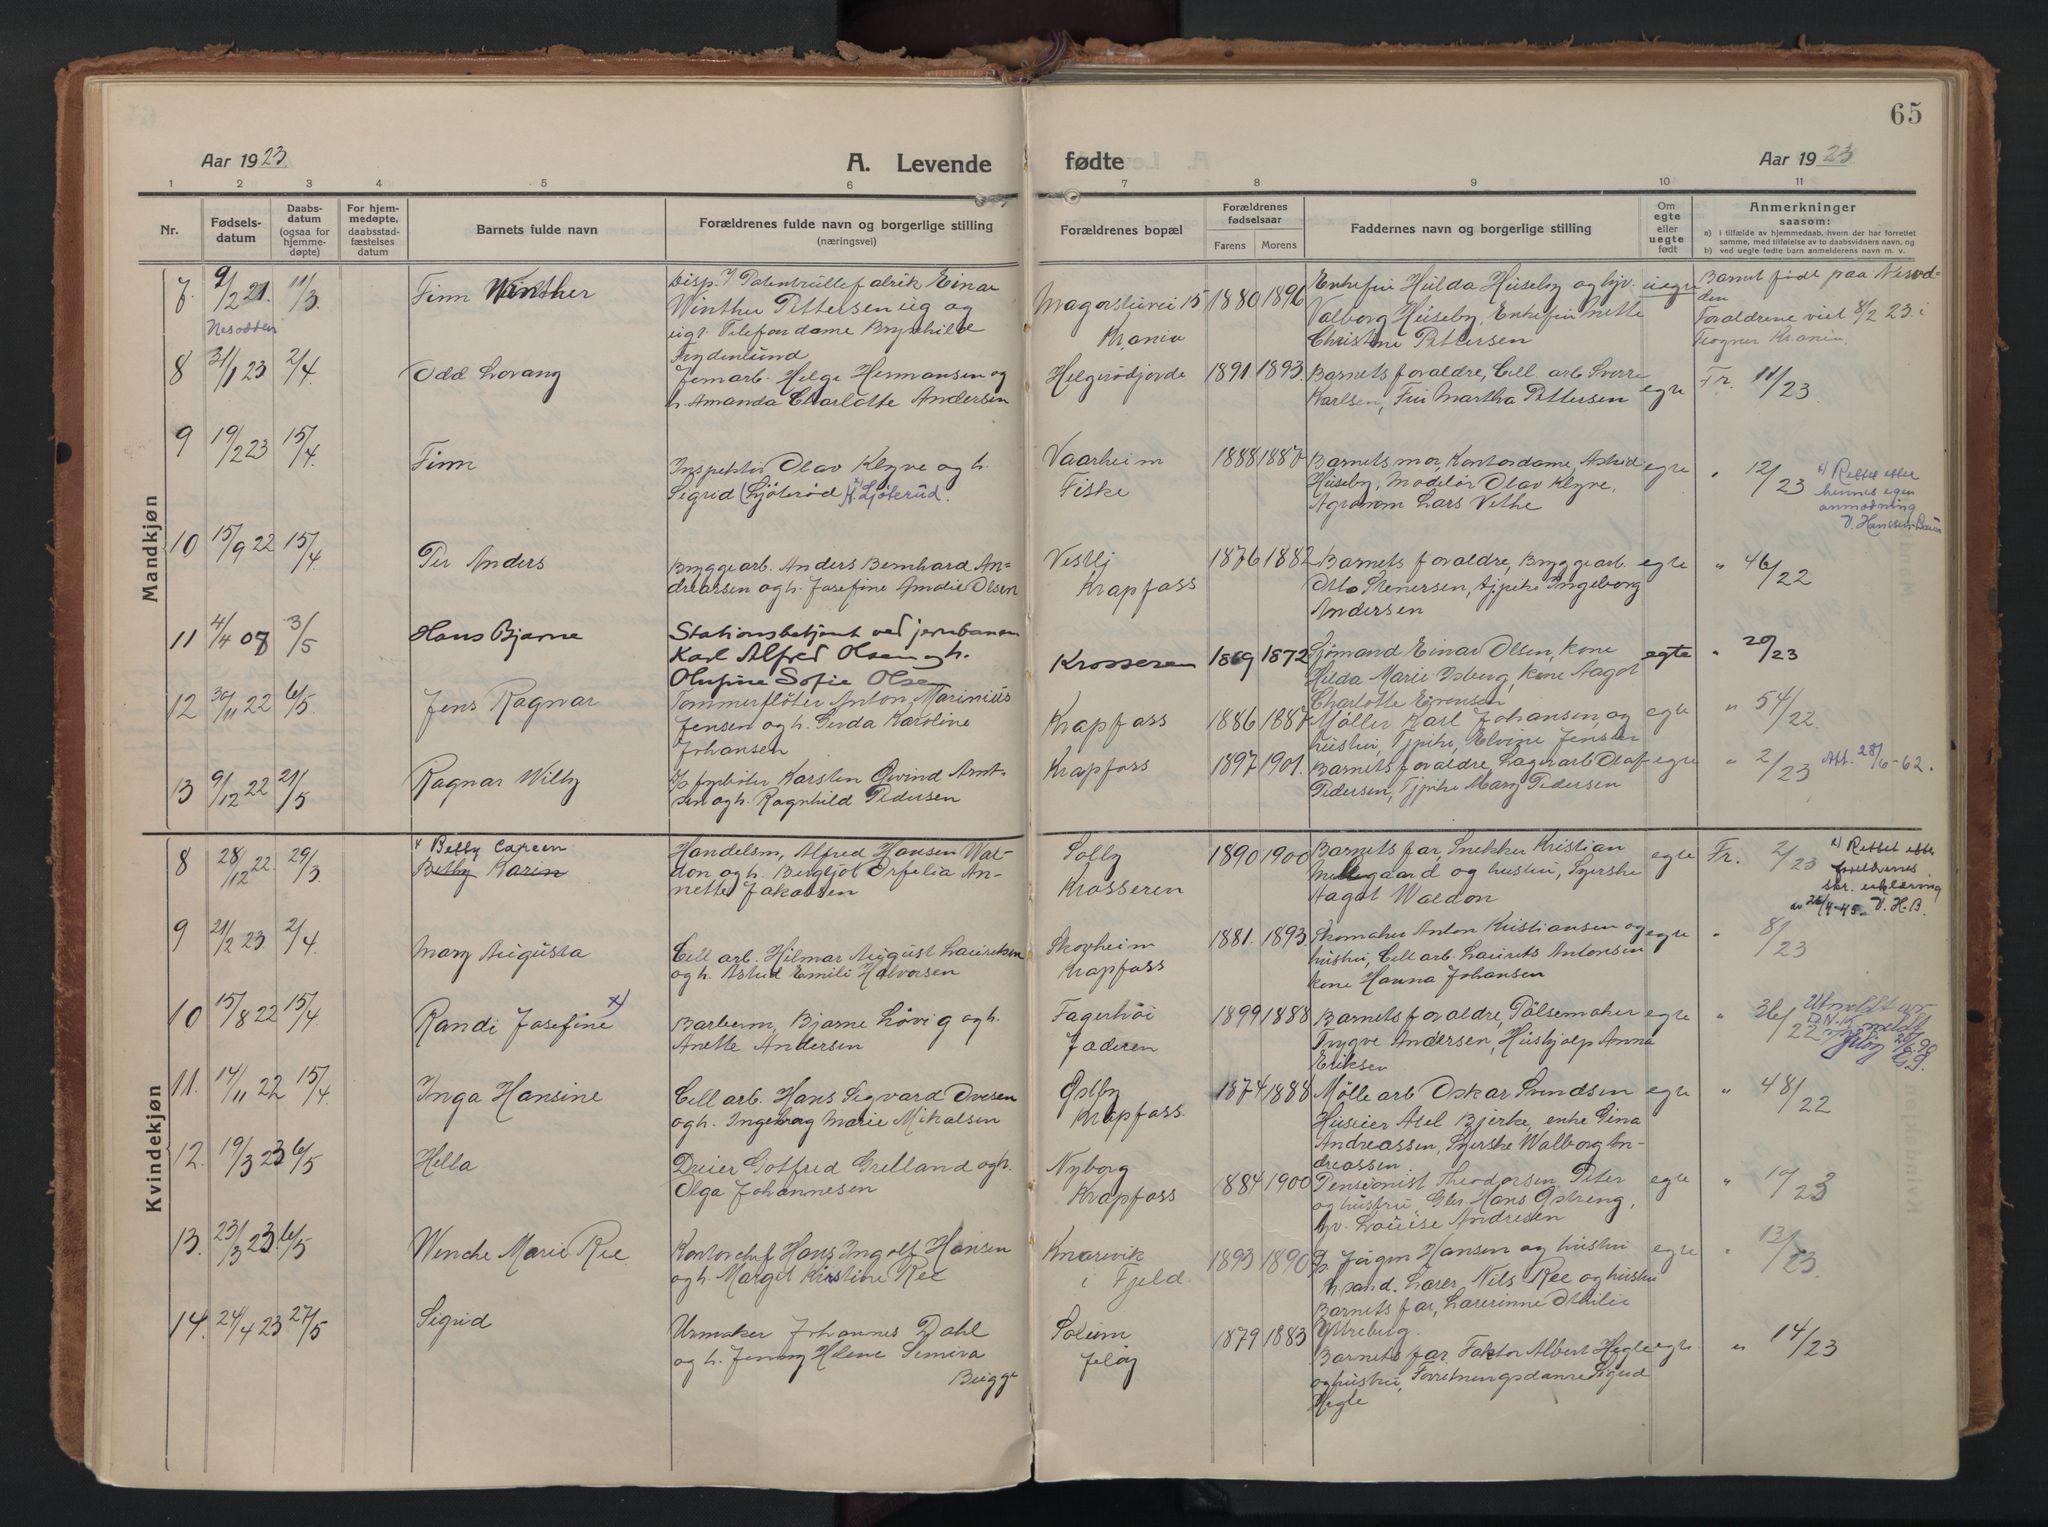 65
Aar 1923
A. Levende fødte
Aar 1923
1 2 3 4 5 6 7 8 9 10 11
Nr.
Fødsels-
datum
Daabs-
datum
(ogsaa for
hjemme-
døpte)
For hjem-
medøpte,
daabsstad-
fæstelses
datum
Barnets fulde navn
Forældrenes fulde navn og borgerlige stilling
(næringsvei)
Forældrenes bopæl
Forældrenes
fødselsaar
Farens Morens
Faddernes navn og borgerlige stilling
Om
egte
eller
uegte
født
Anmerkninger
saasom:
a) i tilfælde av hjemmedaab, hvem der har forrettet
samme, med tilføielse av to daabsvidners navn, og
b) ved uegte fødte barn anmelderens navn m. v.
Mandkjøn
7. 9/2 21. 11/3
Nesodden
Finn Winther
Disp. Einar
Winther Pettersen uig og
uig. Telefondame Brynhilde
Frydenlund
Krania
1880 1896
Enkefru Hulda Huseby og
Valborg Huseby, Enkefru Nette
Christine Pettersen
uegte
Barnet født paa Nesod-
den
Forældrene viet 8/2 23. i
Frogner Krania.
8 31/1 23 2/4.
Odd Lovang
Jernarb. Helge Hermansen og
h. Amanda Charlotte Andersen
Helgerødjorde
1891 1893.
Barnets forældre, Cell. arb Sverre
Karlsen, Fru Martha Pettersen
egte
Fr. 11/23
9 19/2 23 15/4.
Finn
Inspektør Olav Klyve og h.
Sigrid (Ljøterød) x) Ljøterud.
Vaarheim
Fiske
1888 1887
Barnets mor, Kontordame, Astrid
Huseby, Modelør Olav Klyve,
Agronom Lars Vethe
egte
" 12/23
x) Rettet efter
hennes egen
anmodning
V. Hanssen
10 15/9 22 15/4
Per Anders
Bryggearb. Anders Bernhard An-
dreassen og h. Josefine Amalie Olsen
Vestly
Krapfoss
1876 1882
Barnets forældre, Bryggearb.
Otto Stenersen, Tjpike Ingeborg
Andersen
egte
" 46/22
11 4/4 08 3/5
Hans Bjarne
Stationsbetjent ved jernbanen
Karl Alfred Olsen og h.
Olufine Sofie Olsen
Krosseren
1869 1872
Sjømand Einar Olsen, kone
Hilda Marie Isberg, kone Aagot
Charlotte
egte
" 20/23
12 30/11 22 6/5.
Jens Ragnar
Tømmerfløter Anton Marinius
Jensen og h. Gerda Karoline
Johansen
Krapfoss
1886 1887
Møller Karl Johansen og
hustru, Tjpike, Elvine Jensen
egte
" 54/22
13 9/12 22 21/5
Ragnar Willy
Karsten Øivind Arnt-
sen og h. Ragnhild Pedersen
Krapfoss
1897 1901.
Barnets forældre, Lagerarb Olaf
Pedersen, Tjpike Mary Pedersen
egte
" 2/23 Att. 28/6-62.
Kvindekjøn
8 28/12 22 29/3
x Betty Careen
Betty Karin
Handelsm. Alfred Hansen Wal-
don og h. Bergljot Orfelia An-
nette Jakobsen
Solby
Krosseren
1890 1900
Barnets far, Snekker Kristian
Mellegaard og hustru, Syerske
Aagot Waldon
egte
Fr. 2/23
x) Rettet efter
foreldrenes
skr. erklæring
av 26/4-45. V.H.B.
9 21/2 23 2/4
Mary Augusta
Cell arb. Hilmar August Lauritsen
og h. Astrid Emilie Halvorsen
Skovheim
Krapfoss
1881. 1893.
Skomaker Anton Kristiansen og
hustru, Cell arb. Laurits Antonsen
kone Hanna Johansen
egte
" 8/23
10 15/8 22 15/4
Randi Josefine x)
Barberm. Bjarne Løvig og h.
Anette Andersen
Fagerhøi
Jaderen
1899 1888
Barnets forældre, Pølsemaker
Trygve Andersen, Hushjælp Anna
Eriksen
egte
" 36/22
Utmeldt av
D.N.K.
11. 14/11 22 15/4
Inga Hansine
Cell arb. Hans Sigvard Ovesen
og h. Ingeborg Marie Mikalsen
Østby
Krapfoss.
1874 1888
Mølle arb Oskar Gundsen
Huseier Axel Bjerke, enke Gina
Andreassen, Syerske Walborg An-
dreassen
egte
" 48/22
12. 19/3 23 6/5
Hella
Dreier Gotfred Grelland og h.
Olga Johannesen
Nyborg
Krapfoss
1884 1900
Pensionist Theodorsen, Peter
og hustru, Hans Østreng,
Louise Andresen
egte
" 10/23
13. 23/3 23. 6/5
Wenche Marie Ree
Kontorchef Hans Ingolf Hansen
og h. Margit Kirstine Ree
Knarvik
i Fjeld.
1893 1890
Jørgen Hansen og hustru
Lærer Nils Ree og hustru
Barnets far, Lærerinne Othilie
Yttreberg.
egte
" 13/23.
14. 24/4 23 27/5
Sigrid
Urmaker Johannes Dahl
og h. Jenny Helene Semira
Bugge
Solum
Jeløy
1879 1883
Barnets far, Faktor Albert Hegle
og hustru, Forretningsdame Sigrid
Hegle
egte.
" 14/23